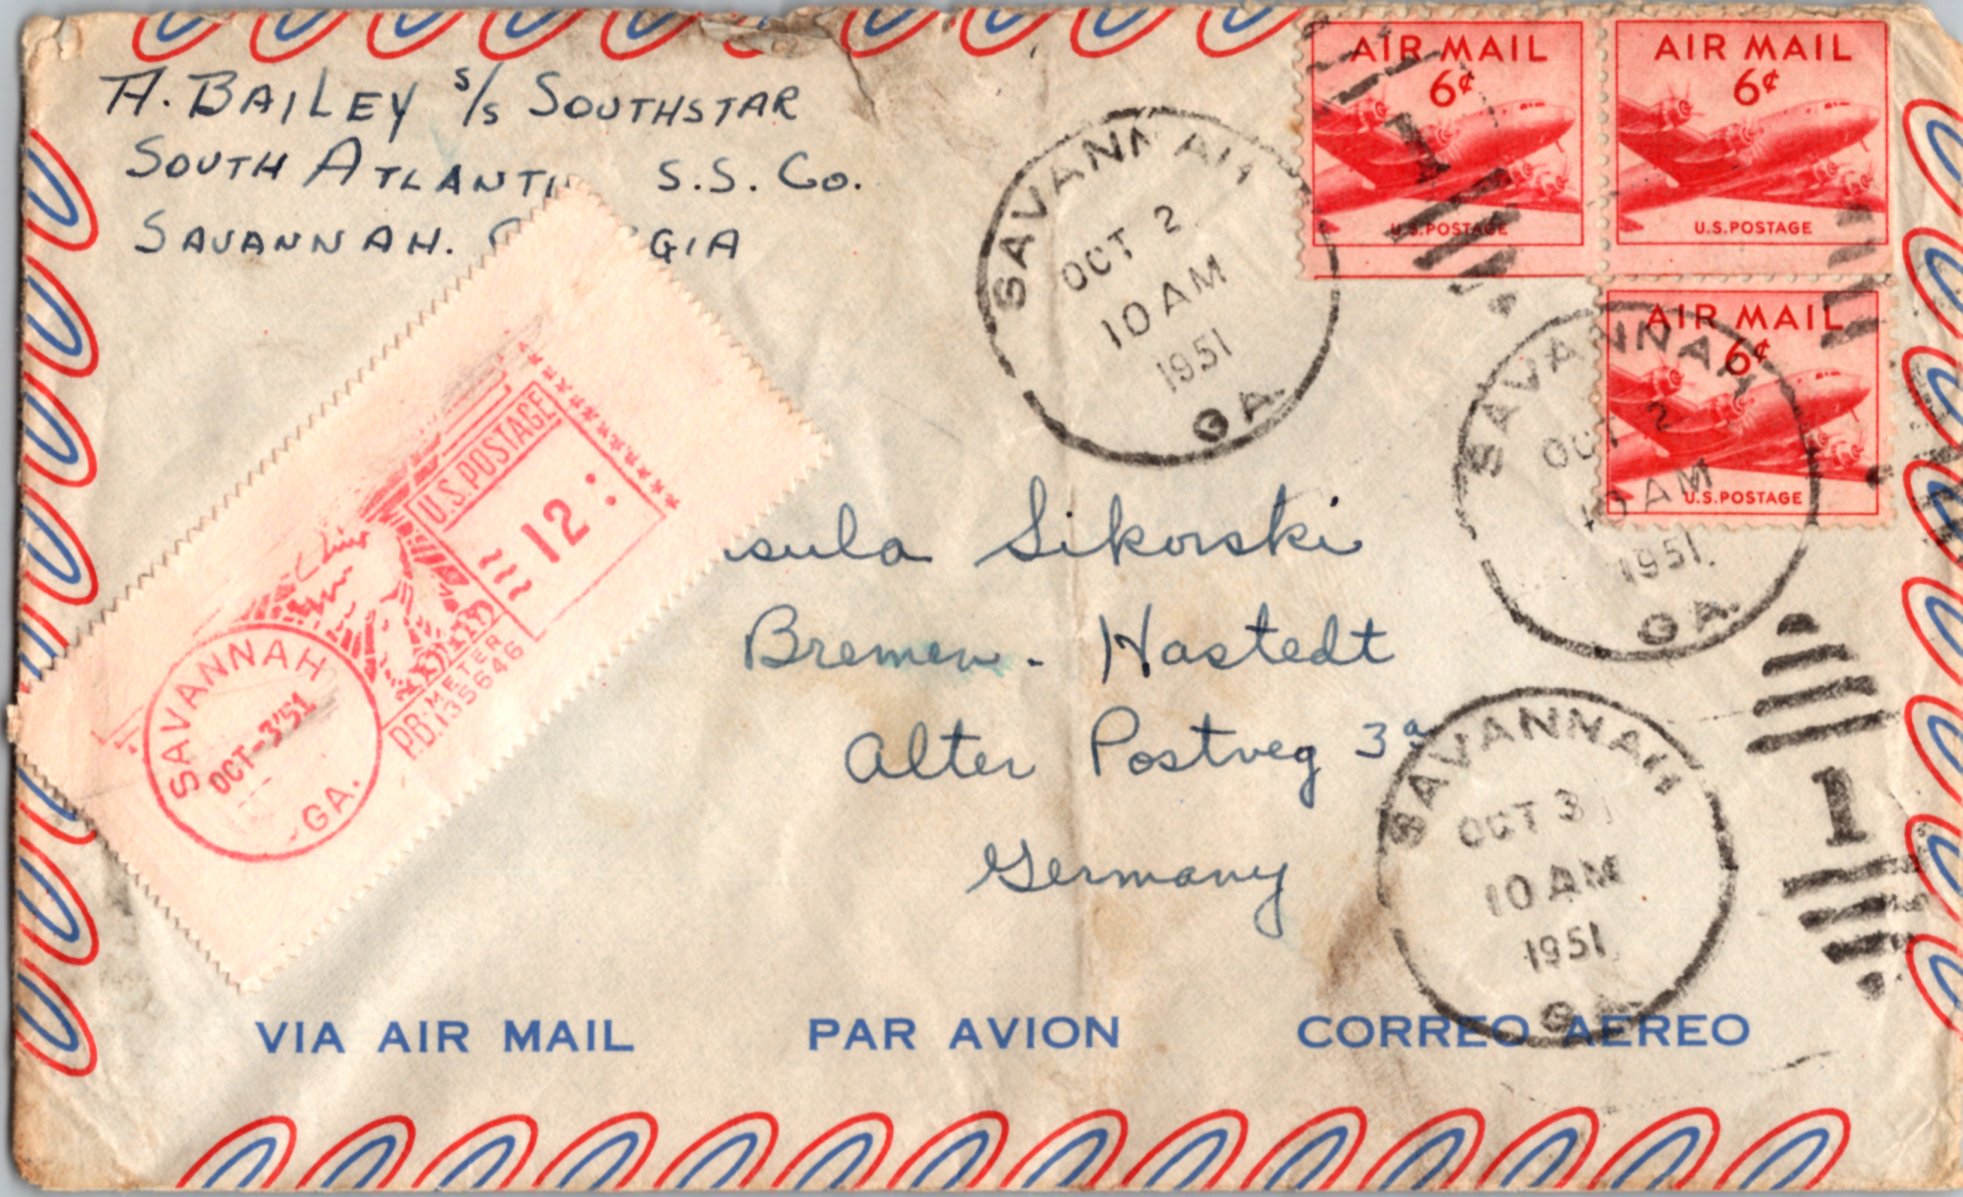 A. BAILEY S/S SOUTHSTAR
SOUTH ATLANTI S.S. Co.
SAVANNAH. GIA
AIR MAIL
6¢
U.S. POSTAGE
AIR MAIL
6¢
U.S. POSTAGE
AIR MAIL
6¢
U.S. POSTAGE
SAVANNAH
OCT 2
10 AM
1951
GA.
SAVANNAH
OCT 2
10 AM
1951
GA.
U.S. POSTAGE
12
P.B. METER
135646
SAVANNAH
OCT-3'51
GA.
sula Sikorski
Bremen - Hastedt
Alter Postweg 3a
Germany
SAVANNAH
OCT 3
10 AM
1951
GA.
1
VIA AIR MAIL PAR AVION CORREO AEREO